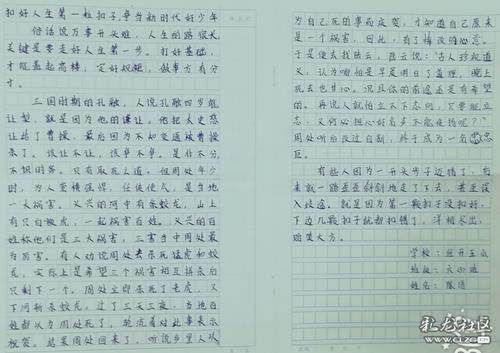 扣好人生第一粒扣子,争当新时代好少年
俗话说万事开头难,人生的路很长,
关键是要走好人生第一步。打好基础,
才能盖起高楼;定好规矩,做事方有分
寸。
三国时期的孔融,人说孔融四岁能
让梨,就是因为他的谦让。他把太史慈
让给了曹操,最后因为不知变通被曹操
杀了。该让不让,该争不争。是非不分,
不懂得事。只有取死之道。但周处年少
时,为人蛮横强悍,任侠使气,是当地
一大祸害。义兴的河中有条蛟龙,山上
有只白额虎,一起祸害百姓。义兴的百
姓称他们是三大祸害,三害当中周处最
为厉害。有人劝说周处去杀死猛虎和蛟
龙,实际上是希望三个祸害相互拼杀后
只剩下一个。周处立即杀死了老虎,又
下河斩杀蛟龙。过了三天三夜,当地百
姓都认为周处死了,轮流着对此事表示
祝贺。结果周处回来了,听说乡里人以
为自己死的事而庆贺,才知道自己原来
是一个祸害,因此,有了悔改的心意。
于是便去找陆云,陆云说:“古人珍视道
义,认为哪怕是早晨明白了道理,晚上
死去也甘心。况且你的前途还是有希望
的。再说人就怕立不下志向,只要能立
志,又何必担心好名声不能传扬呢?”
周处听后改过自新,终于成为一名忠
臣。
有些人因为一开头步子迈错了,后
来就一路歪歪斜斜地走了下去,甚至误
入歧途。就是因为第一颗扣子没扣好,
下边几颗扣子就都扣错了,洋相尽出,
贻笑大方。
学校:
班级:六
姓名:陈
彩龙社区
WWW.CLZG.CN